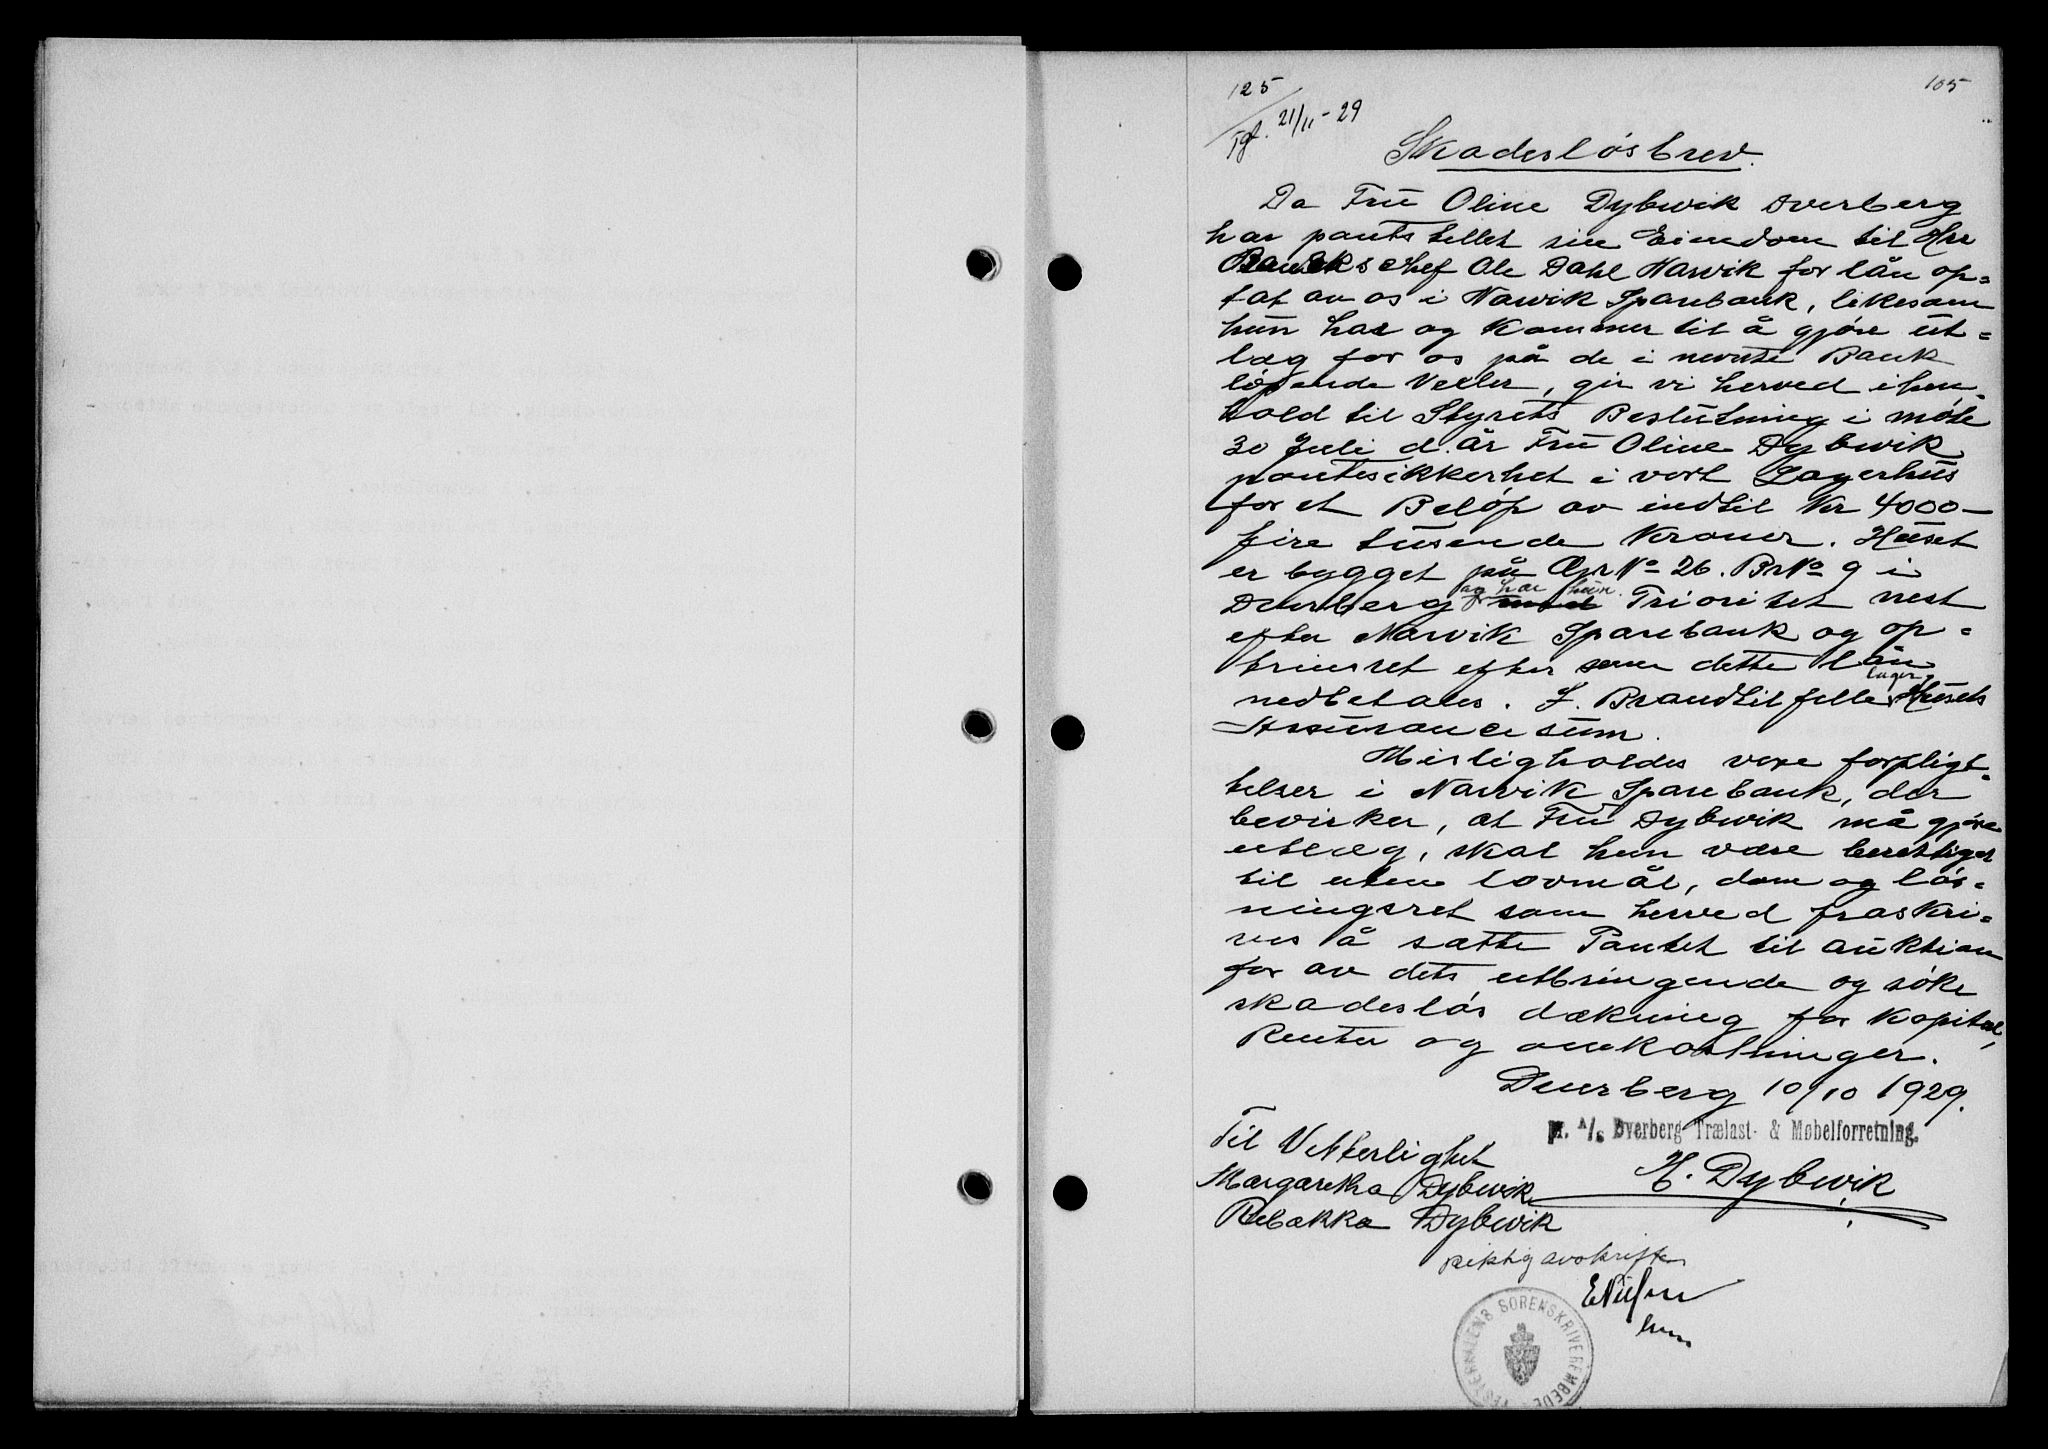 125
Tgf. 21/11-29
105
Skadesløsbrev.
Da Frü Oline Dybwik Dverberg
har pantstillet sin Eiendom til Hrr
Bankschef Ole Dahl Narvik for lån op=
tat av os i Narvik Sparebank, likesom
hün har og kommer til å gjøre üt=
læg for os på de i nevnte Bank
løpende Vexler, gir vi herved ihen=
hold til Styrets Beslütning i møte
30 Juli d. år Frü Oline Dybwik
pantesikkerhet i vort Lagerhüs
for et Beløp av indtil Kr 4000-
fire tüsende Kroner. Hüset
er bygget på Gr No 26. Br No 9 i
Dverberg og har hün Prioritet nest
efter Narvik Sparebank og op=
trinsret efter som dette lån
nedbetales. I. Brandtilfelle lager Hüsets
Assüranse süm.
Misligholdes vore forpligt=
telser i Narvik Sparebank, der
bevirker, at Frü Dybwik må gjøre
utlæg, skal hun være berettiget
til uten lovmål, dom og løs=
ningsret som herved fraskri=
ves å sætte Pantet til auktion
for av dets utbringende og søke
skadesløs dækning for Kapital,
Renter og omkostninger.
Dverberg 10/10 1929.
pr. A/S Dverberg Trælast- & Møbelforretning.
Til Vitterlighet
H. Dybwik
Margaretha Dybwik
Rebekka Dybwik
Riktig avskrift
ENilsen
VESTERAALENS SORENSKRIVEREMBEDE